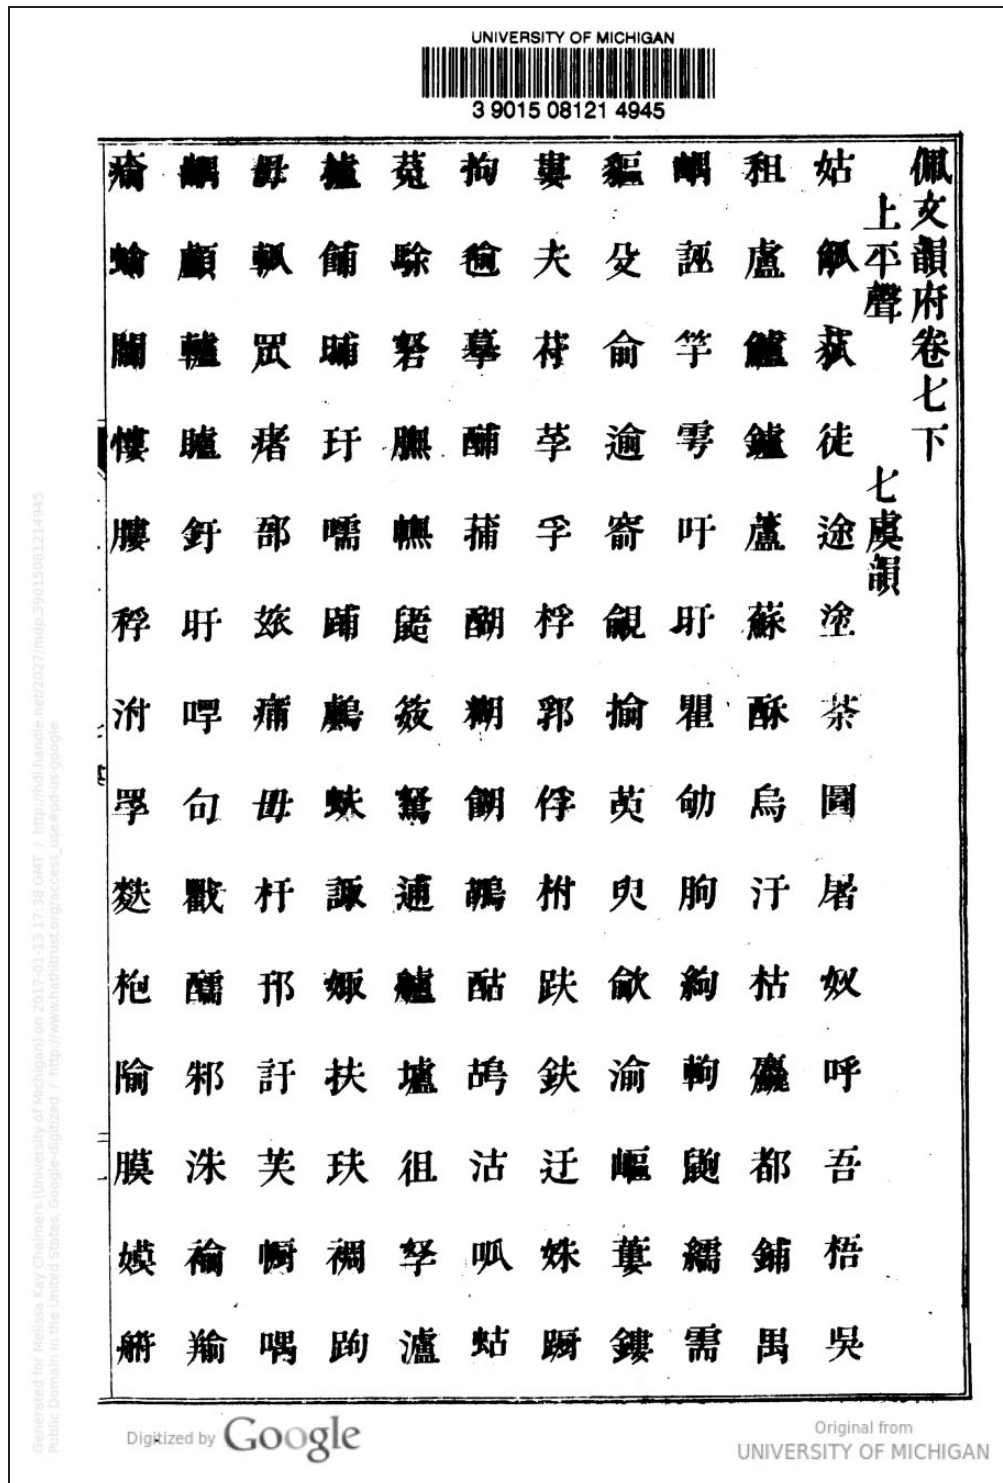 UNIVERSITY OF MICHIGAN
3 9015 08121 4945
佩文韻府卷七下
上平聲 七虞韻
姑 觚 菰 徒 途 塗 荼 圖 屠 奴 呼 吾 梧 吳
租 盧 鱸 鑪 蘆 蘇 酥 烏 汙 枯 麤 都 鋪 禺
嵎 誣 竽 雩 吁 盱 瞿 劬 朐 絢 軥 鼩 繻 需
貙 殳 俞 逾 窬 覦 揄 萸 臾 歈 渝 嶇 蔞 鏤
婁 夫 苻 莩 孚 桴 郛 俘 柎 趺 鈇 迂 姝 蹰
拘 匍 摹 酺 蒲 醐 糊 餬 鶘 酤 鴣 沽 呱 蛄
菟 駼 砮 膴 幠 鼯 笯 駑 逋 艫 壚 徂 孥 瀘
櫨 餔 晡 玗 嚅 踊 鸕 蚨 諏 娵 扶 玞 裯 跔
毋 瓠 罛 瘏 郚 痡 毌 杅 邘 訏 芙 幮 喁
齵 顱 轤 矑 釪 盱 呼 句 氍 醹 邾 洙 褕 羭
瘉 蝓 闍 慺 膢 稃 泭 罦 麩 枹 隃 膜 嫫
Generated for Melissa Kay Chalmers (University of Michigan) on 2017-01-13 17:38 GMT / http://hdl.handle.net/2027/mdp.39015081214945
Public Domain in the United States, Google-digitized / http://www.hathitrust.org/access_use#pd-us-google
Digitized by Google
Original from
UNIVERSITY OF MICHIGAN